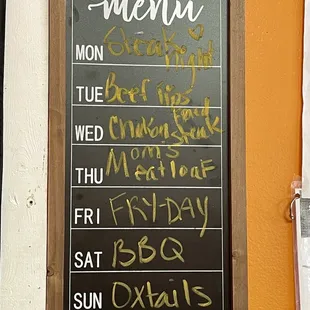 menu
MON Steak night
TUE Beef Tips
WED Chicken Fried Steak
THU Mom's Meatloaf
FRI FRY-DAY
SAT BBQ
SUN Oxtails